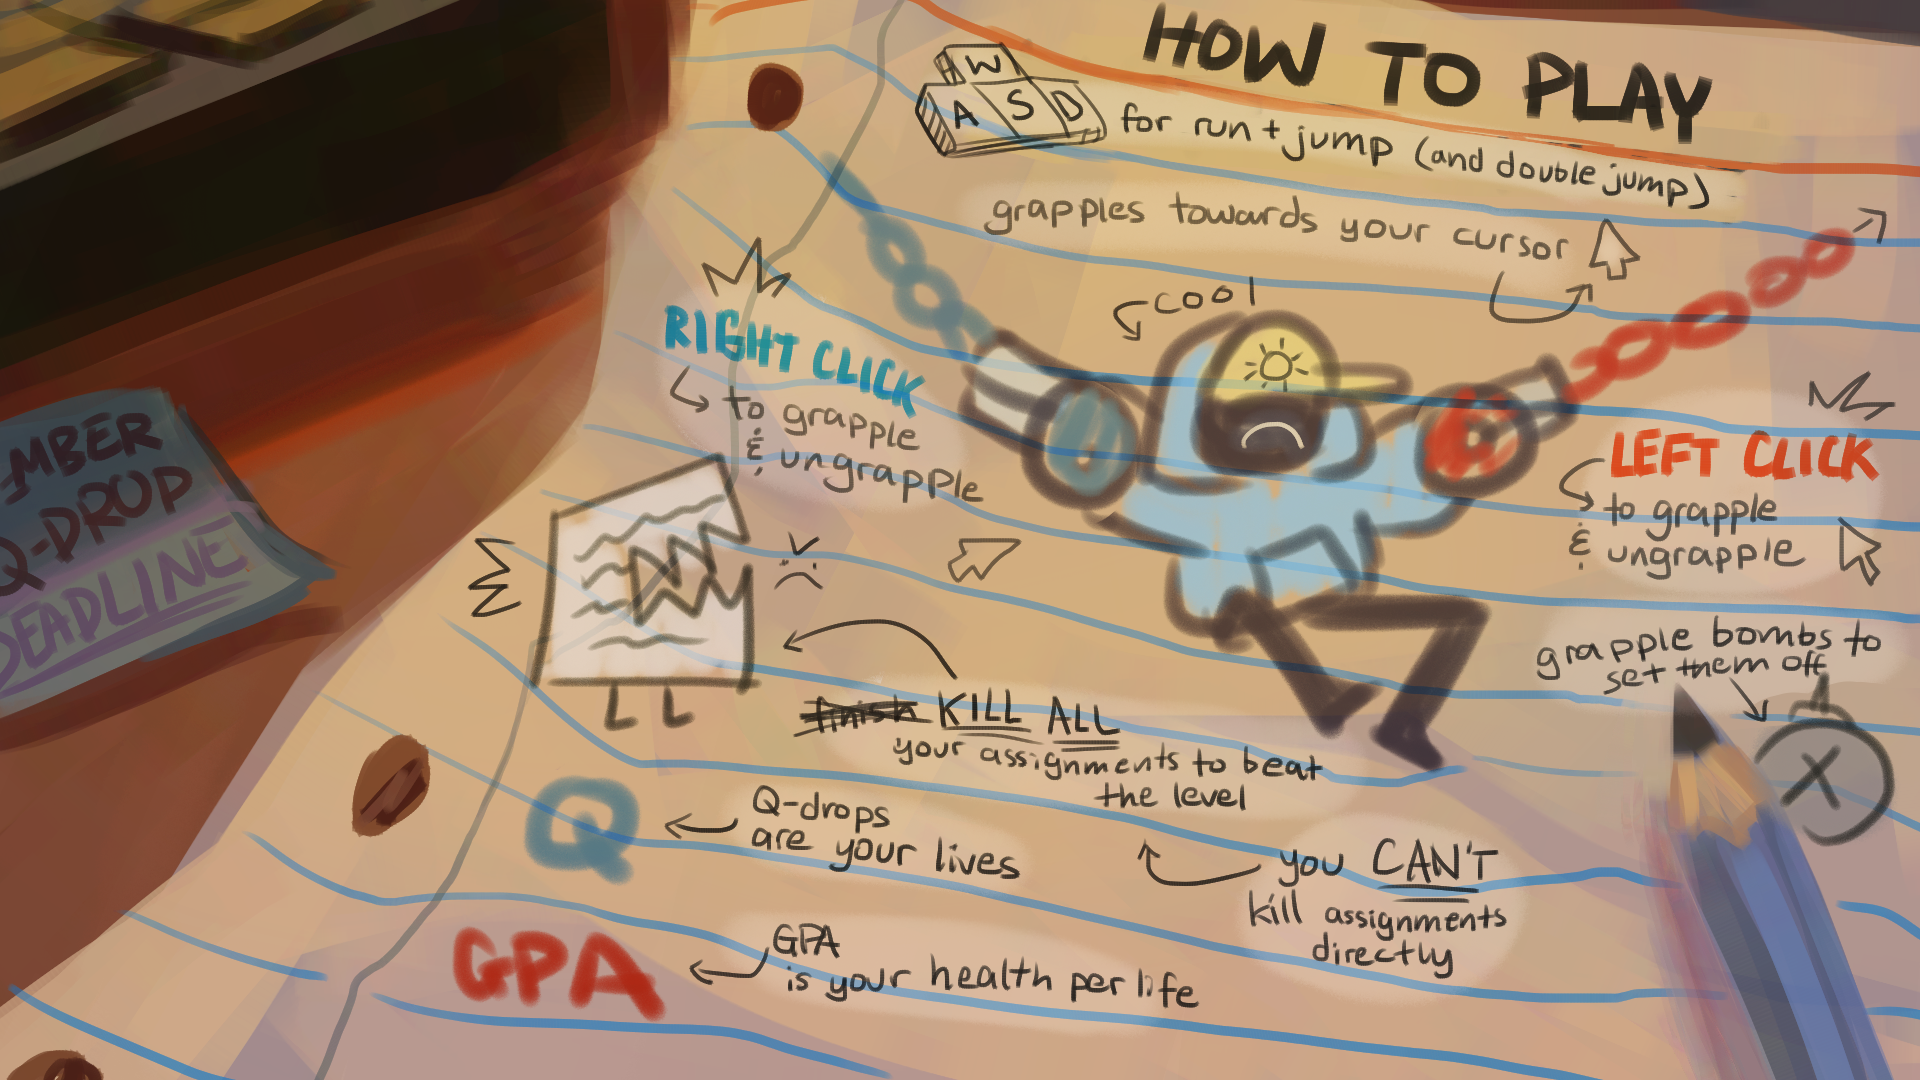 HOW TO PLAY
W
A S D
for run + jump (and double jump)
grapples towards your cursor
cool
RIGHT CLICK
to grapple
& ungrapple
LEFT CLICK
to grapple
& ungrapple
grapple bombs to
set them off
X
finish KILL ALL
your assignments to beat
the level
Q
Q-drops
are your lives
you CAN'T
kill assignments
directly
GPA
GPA
is your health per life
-MBER
Q-DROP
DEADLINE